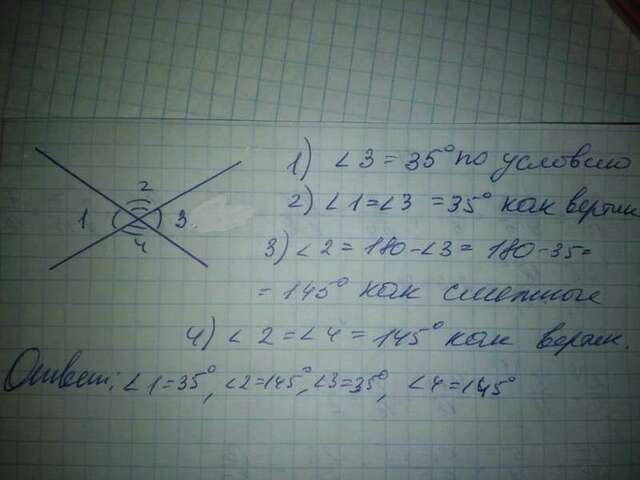 2
1
3
4
1) ∠3 = 35° по условию
2) ∠1 = ∠3 = 35° как вертик
3) ∠2 = 180 - ∠3 = 180 - 35 =
= 145° как смежные
4) ∠2 = ∠4 = 145° как вертик.
Ответ: ∠1 = 35°, ∠2 = 145°, ∠3 = 35°, ∠4 = 145°